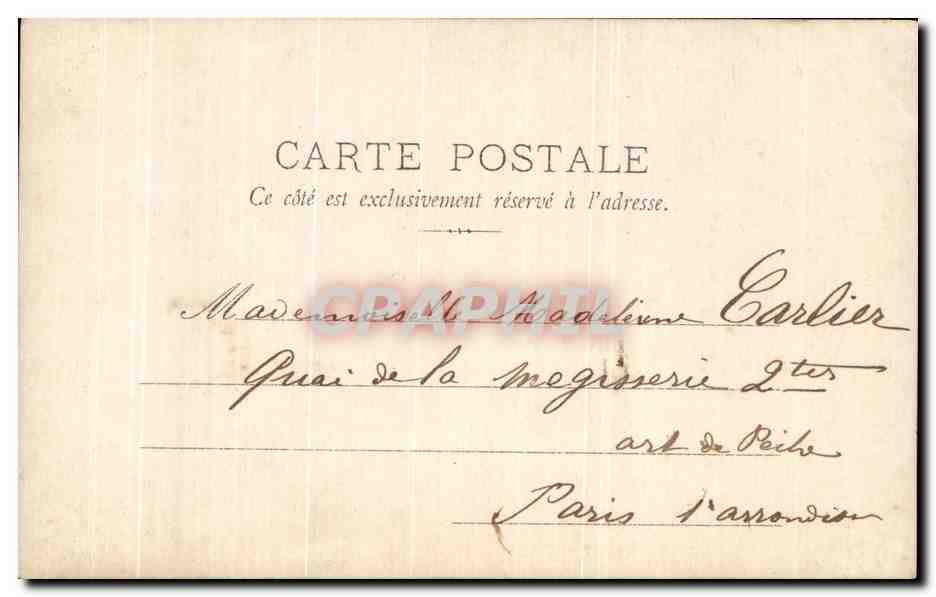 CARTE POSTALE
Ce côté est exclusivement réservé à l'adresse.
CPAPHIL
Mademoiselle Madeleine Carlier
Quai de la megisserie 2ter
art de Pêche
Paris 1r arrondiss